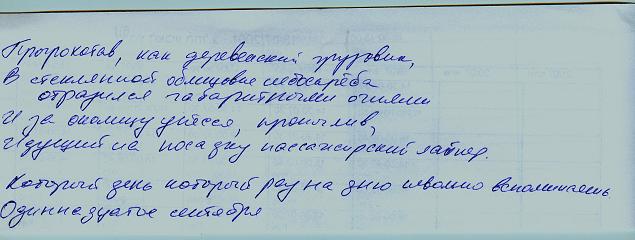 Прогрохотав, как деревенский грузовик,
В стеклянной облицовке небоскрёба
отразился габаритными огнями
И за околицу унёсся, кропотлив,
Идущий на посадку пассажирский лайнер.
Который день который раз на дню невольно вспоминаешь
Одиннадцатое сентября